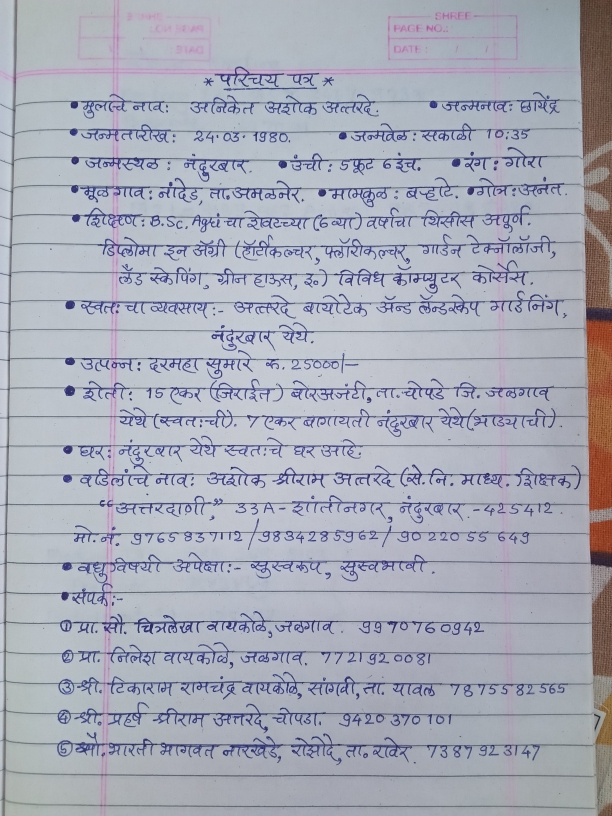 SHREE
PAGE NO.:
DATE: / /
* परिचय पत्र *
• मुलाचे नाव: अनिकेत अशोक अत्तरदे. • जन्मनाव:
• जन्मतारीख: 24.03.1980. • जन्मवेळ: सकाळी 10:35
• जन्मस्थळ: नंदुरबार. • उंची: 5 फूट 6 इंच. • रंग: गोरा
• मूळ गाव: नांदेड, ता. अमळनेर. • मामकुळ: बऱ्हाटे. • गोत्र: अनंत.
• शिक्षण: B.Sc. Agri चा शेवटच्या (6 व्या) वर्षाचा थिसीस अपूर्ण.
डिप्लोमा इन ॲग्री (हॉर्टीकल्चर, फ्लॉरीकल्चर, गार्डन टेक्नॉलॉजी,
लँड स्केपिंग, ग्रीन हाऊस, इ.) विविध कॉम्प्युटर कोर्सेस.
• स्वतःचा व्यवसाय:- अत्तरदे बायोटेक ॲन्ड लॅन्डस्केप गार्डनिंग,
नंदुरबार येथे.
• उत्पन्न: दरमहा सुमारे रु. 25000/-
• शेती: 15 एकर (जिराईत) बोरअजंटी, ता. चोपडे जि. जळगाव
येथे (स्वतःची). 7 एकर बागायती नंदुरबार येथे (भाड्याची).
• घर: नंदुरबार येथे स्वतःचे घर आहे.
• वडिलांचे नाव: अशोक श्रीराम अत्तरदे (से. नि. माध्य. शिक्षक)
"अत्तरदाणी," 33A - शांतीनगर, नंदुरबार. - 425412.
मो. नं. 9765837112 / 9834285962 / 9022055649
• वधुविषयी अपेक्षा:- सुस्वरूप, सुस्वभावी.
• संपर्क:-
① प्रा. सौ. चित्रलेखा वायकोळे, जळगाव. 9970760942
② प्रा. निलेश वायकोळे, जळगाव. 7721920081
③ श्री. टिकाराम रामचंद्र वायकोळे, सांगवी, ता. यावल 7875582565
④ श्री. प्रहर्ष श्रीराम अत्तरदे, चोपडा. 9420370101
⑤ सौ. भारती भागवत नारखेडे, रोझोदे, ता. रावेर. 7387923147